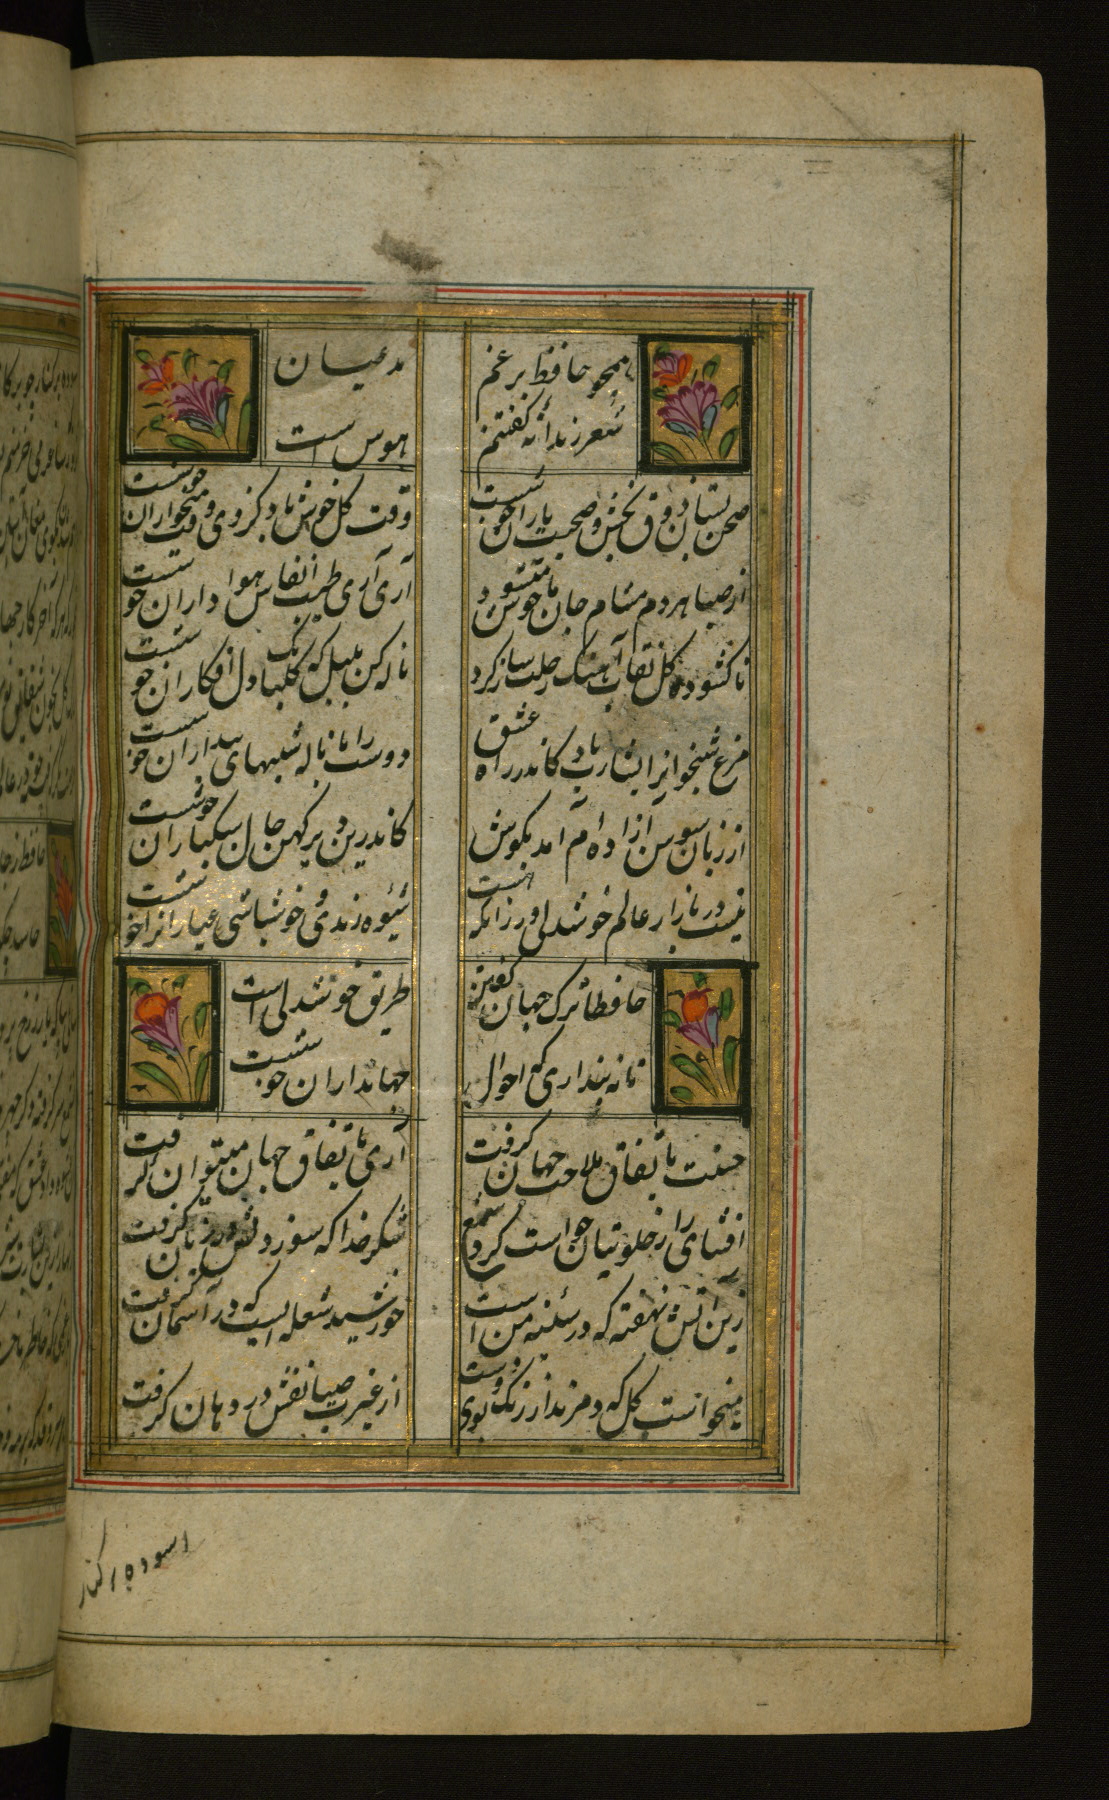 همچو حافظ برغم
مدعیان
شعر رندانه گفتنم
هوس است
صحن بستان ذوق بخش و صحبت یاران خوشست
وقت گل خوش باد کز وی وقت میخواران خوشست
از صبا هر دم مشام جان ما خوش میشود
آری آری طیب انفاس هوا داران خوشست
ناکشوده گل نقاب آهنگ رحلت ساز کرد
ناله کن بلبل که گلبانک دل افکاران خوشست
مرغ شبخوانرا بشارت باد کاندر راه عشق
دوست را با ناله شبهای بیداران خوشست
از زبان سوسن ازاده ام آمد بکوش
کاندرین دیر کهن حال سبکباران خوشست
نیست در بازار عالم خوشدلی ورزانکه هست
شیوه رندی و خوشباشی عیارانرا خوشست
حافظا ترک جهان گفتن
طریق خوشدلی است
تا نه پنداری که احوال
جهانداران خوشست
حسنت باتفاق ملاحت جهان کرفت
آری باتفاق جهان میتوان کرفت
افشای راز خلوتیان خواست کرد شمع
شکر خدا که سوز دلش در زبان کرفت
زین آتش نهفته که در سینه من است
خورشید شعله ایست که در آسمان کرفت
میخواست گل که دم زند از رنک و بوی دوست
از غیرت صبا نفسش در دهان کرفت
اسوده بر کنار